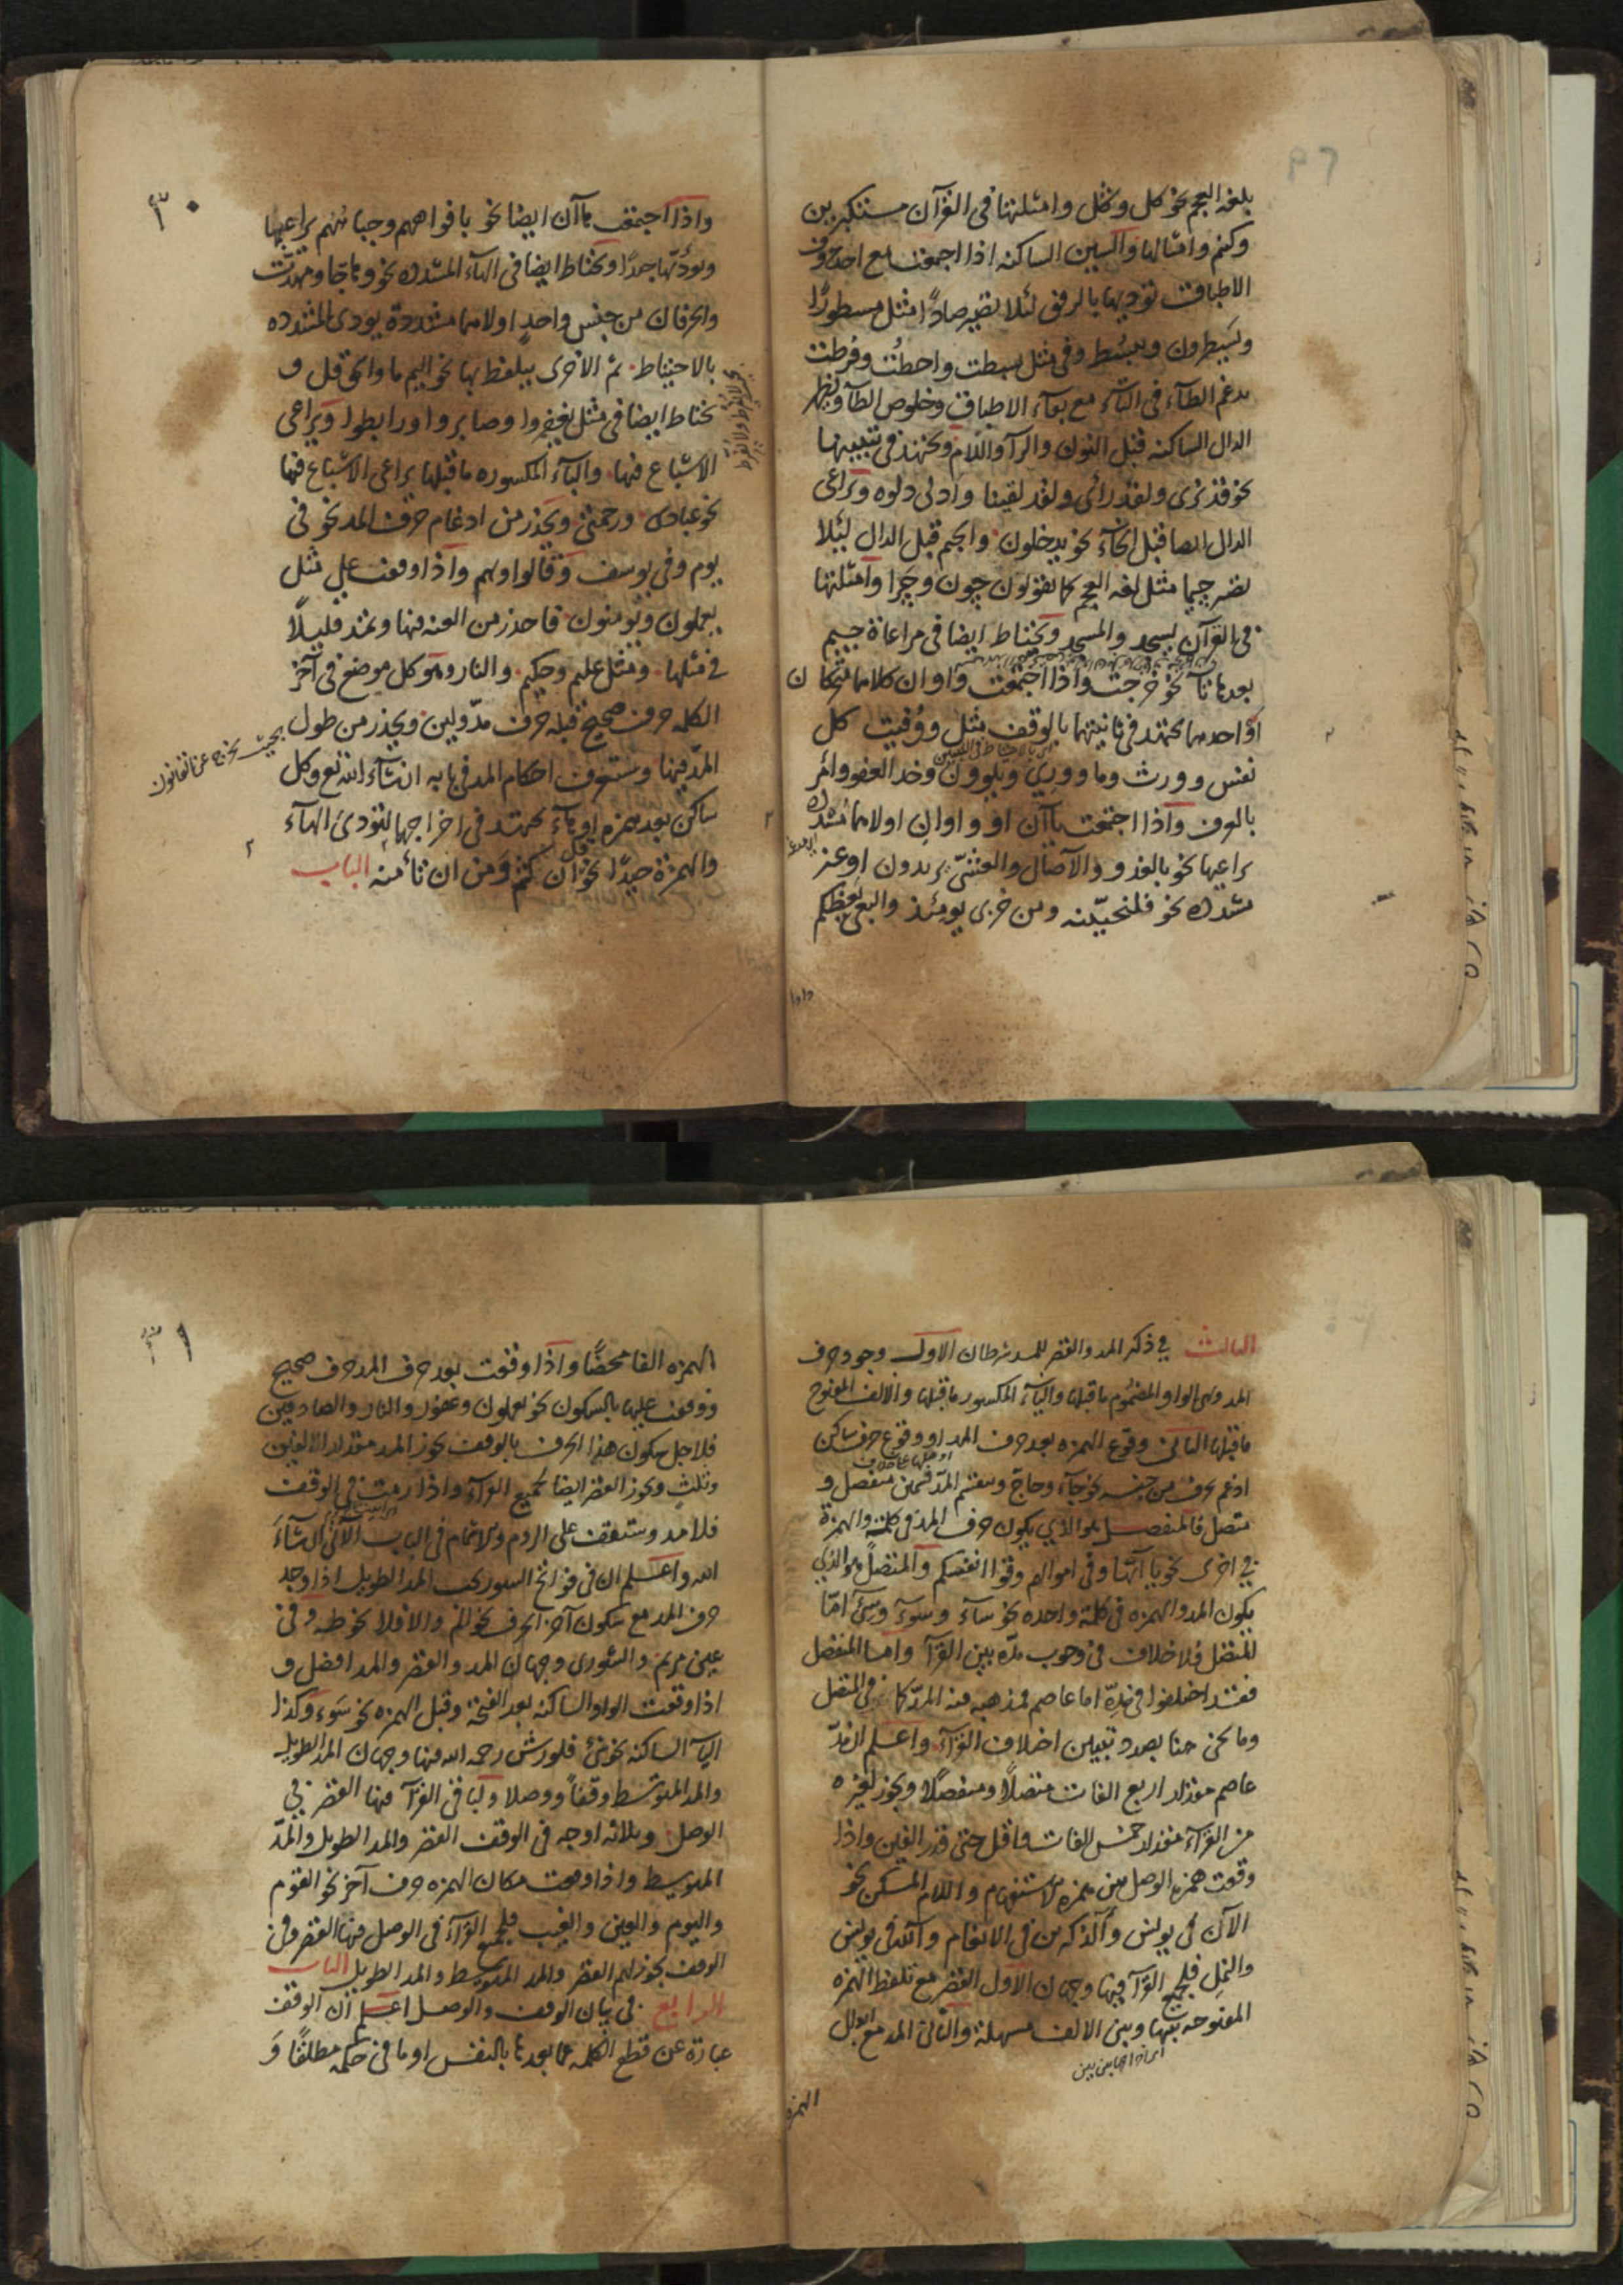 بلغة العجم نحو كل ونكتل وامثلتها فى القرآن مستكبرين
وكنتم وامثالها والسين الساكنه اذا اجتمعت مع احد حروف
الاطباق تؤديها بالرفق لئلا تصير صادًا مثل مسطورًا
ويسطرون ويبسط وفى مثل بسطت واحطت وفرطت
يدغم الطآء فى التآء مع بقآء الاطباق وخلوص الطآء ويظهر
الدال الساكنه قبل النون والرآء واللام ويجتهد فى تبيينها
نحو قد نرى ولقد رائ ولقد لقينا وادلى دلوه ويراعى
الدال ايضا قبل الخآء نحو يدخلون والجيم قبل الدال لئلا
تصير چيما مثل لغه العجم كما تقولون چون وچرا وامثلتها
فى القرآن يسجد والمسجد ويحتاط ايضا فى مراعاة جيم
بعدها تآ نحو خرجت واذا اجتمعت واوان كلاهما متحركان
او احديهما يجتهد فى ثانيتهما بالوقف مثل ووفيت كل
نفس وورث وما ووري ويلوون وخذ العفو وامر
بالعرف واذا اجتمعت يآآن او واوان اولاهما مشدده
يراعيها نحو بالغدو والآصال والعشىّ يريدون او غير
مشدده نحو فلنحيينه ومن خزى يومئذ والبغى يعظكم
واذا
٣٠
واذا اجتمعت هآآن ايضا نحو بافواههم وجباههم يراعيها
ويؤديها جدًا ويحتاط ايضا فى الهآء المشدده نحو وهاجا ومهدت
والحرفان من جنس واحد اولاهما مشددة يودى المشدده
بالاحتياط ثم الاخرى يتلفظ بها نحو اليم ما والحق قل و
يحتاط ايضا فى مثل يغفروا وصابروا ورابطوا ويراعى
الاشباع فيها والياء المكسوره ماقبلها يراعى الاشباع فيها
نحو عبادى ورحمتى ويحذر من ادغام حرف المد نحو فى
يوم وفى يوسف وقالوا وهم واذا وقعت على مثل
يعملون ويؤمنون فاحذر من الغنه فيها وتمد قليلًا
فى مثلها ومثل عليم وحكيم والنار وهو كل موضع فى آخر
الكلمه حرف صحيح قبله حرف مدّ ولين ويحذر من طول
المدّ فيها وستعرف احكام المد فى بابه انشآء الله تع وكل
بحيث يخرج عن القانون
ساكن بعد همزه او هآء يجتهد فى اخراجها لتؤدى الهآء
والهمزة جيدًا نحو ان كنتم ومن ان تأمنه الباب
الثالث فى ذكر المد والقصر للمد شرطان الاول وجود حرف
المد وهى الواو المضموم ماقبلها واليآء المكسور ماقبلها والالف المفتوح
ماقبلها الثانى وقوع الهمزه بعد حرف المد او وقوع حرف ساكن
ادغم بحرف من جنسه نحو جآء وحاجّ وينقسم المدّ قسمين منفصل و
متصل فالمنفصل هو الذي يكون حرف المد فى كلمة والهمزة
فى اخرى نحو يا ايّها وفى اموالهم وقوا انفسكم والمتصل هو الذي
يكون المد والهمزه فى كلمة واحده نحو سآء وسوء وسئ امّا
المتصل فلا خلاف فى وجوب مدّه بين القرآ واما المنفصل
فقد اختلفوا فى مدّه اما عاصم فمذهبه فيه المدّ كما فى المتصل
وما نحن هنا بصدد تبيين اختلاف القرآء واعلم ان مدّ
عاصم مقدار اربع الفات متصلًا ومنفصلًا ويجوز لغيره
من القرآء مقدار خمس الفات فاقل حتى قدر الفين واذا
وقعت همزه الوصل بين همزة الاستفهام واللام المسكن نحو
الآن فى يونس وآلذكرين فى الانعام وآلله فى يونس
والنمل فلجميع القرآ فيها وجهان الاول القصر مع تلفظ الهمزه
المفتوحه بينها وبين الالف مسهلة والثانى المد مع ابدال
اى ادائها بين بين
الهمزه
٣١
الهمزه الفا محضًا واذا وقعت بعد حرف المد حرف صحيح
ووقفت عليها بالسكون نحو يعملون وغفور والنار والصادقين
فلاجل سكون هذا الحرف بالوقف يجوز المد مقدار الالفين
وثلث ويجوز القصر ايضا لجميع القرآء واذا رمت فى الوقف
فلا مد وستقف على الروم والاشمام فى الباب الآتى ان شآء
الله واعلم ان فى فواتح السور يجب المد الطويل اذا وجد
حرف المد مع سكون آخر الحرف نحو الم والا فلا نحو طه وفى
عين مريم والشورى وجهان المد والقصر والمد افضل و
اذا وقعت الواو الساكنه بعد الفتحة وقبل الهمزه نحو سَوء وكذا
اليآء الساكنه نحو شئ فلورش رحمه الله فيها وجهان المد الطويل
والمد المتوسط وقفًا ووصلا ولباقى القرآ فيها القصر فى
الوصل وثلاثه اوجه فى الوقف القصر والمد الطويل والمدّ
المتوسط واذا وقعت مكان الهمزه حرف آخر نحو القوم
واليوم والعين والغيب فلجميع القرآء فى الوصل فيها القصر وفى
الوقف يجوز لهم القصر والمد المتوسط والمد الطويل الباب
الرابع فى بيان الوقف والوصل اعلم ان الوقف
عبارة عن قطع الكلمه عما بعدها بالنفس او ما فى حكمه مطلقًا و